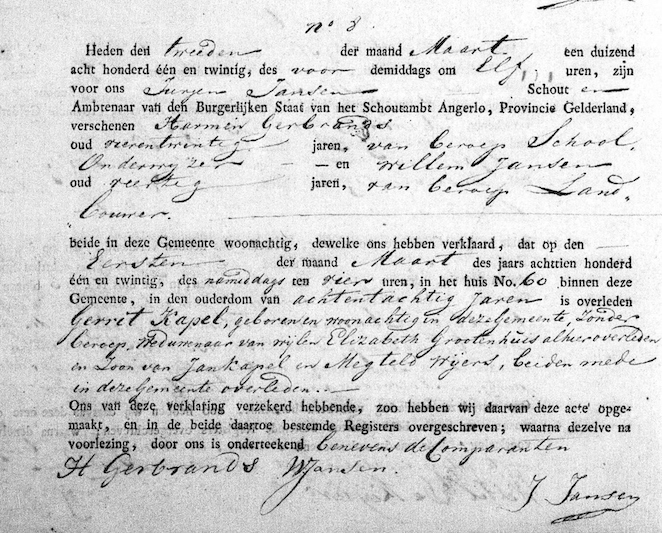 no 8.
Heden den tweeden der maand Maart een duizend
acht honderd één en twintig, des voor demiddags om Elf, uren, zijn
voor ons Jurjen Jansen Schout en
Ambtenaar van den Burgerlijken Staat van het Schoutambt Angerlo, Provincie Gelderland,
verschenen Harmen Gerbrands
oud vierentwintig jaren, van beroep School,
Onderwyzer — — en Willem Jansen
oud veertig jaren, van beroep Land„
bouwer.
beide in deze Gemeente woonachtig, dewelke ons hebben verklaard, dat op den —
Eersten der maand Maart des jaars achttien honderd
één en twintig, des namiddags ten vier uren, in het huis No. 60 binnen deze
Gemeente, in den ouderdom van achtentachtig Jaren is overleden
Gerrit Kapel, geboren en woonachtig in deze Gemeente, Zonder
beroep, Weduwnaar van wijlen Elizabeth Grootenhuis alhier overleden
en Zoon van Jan Kapel en Megteld Wijers, beiden mede
in deze Gemeente overleden.
Ons van deze verklaring verzekerd hebbende, zoo hebben wij daarvan deze acte opge-
maakt, en in de beide daartoe bestemde Registers overgeschreven; waarna dezelve na
voorlezing, door ons is onderteekend benevens de Comparanten
H Gerbrands WJansen.
J Jansen